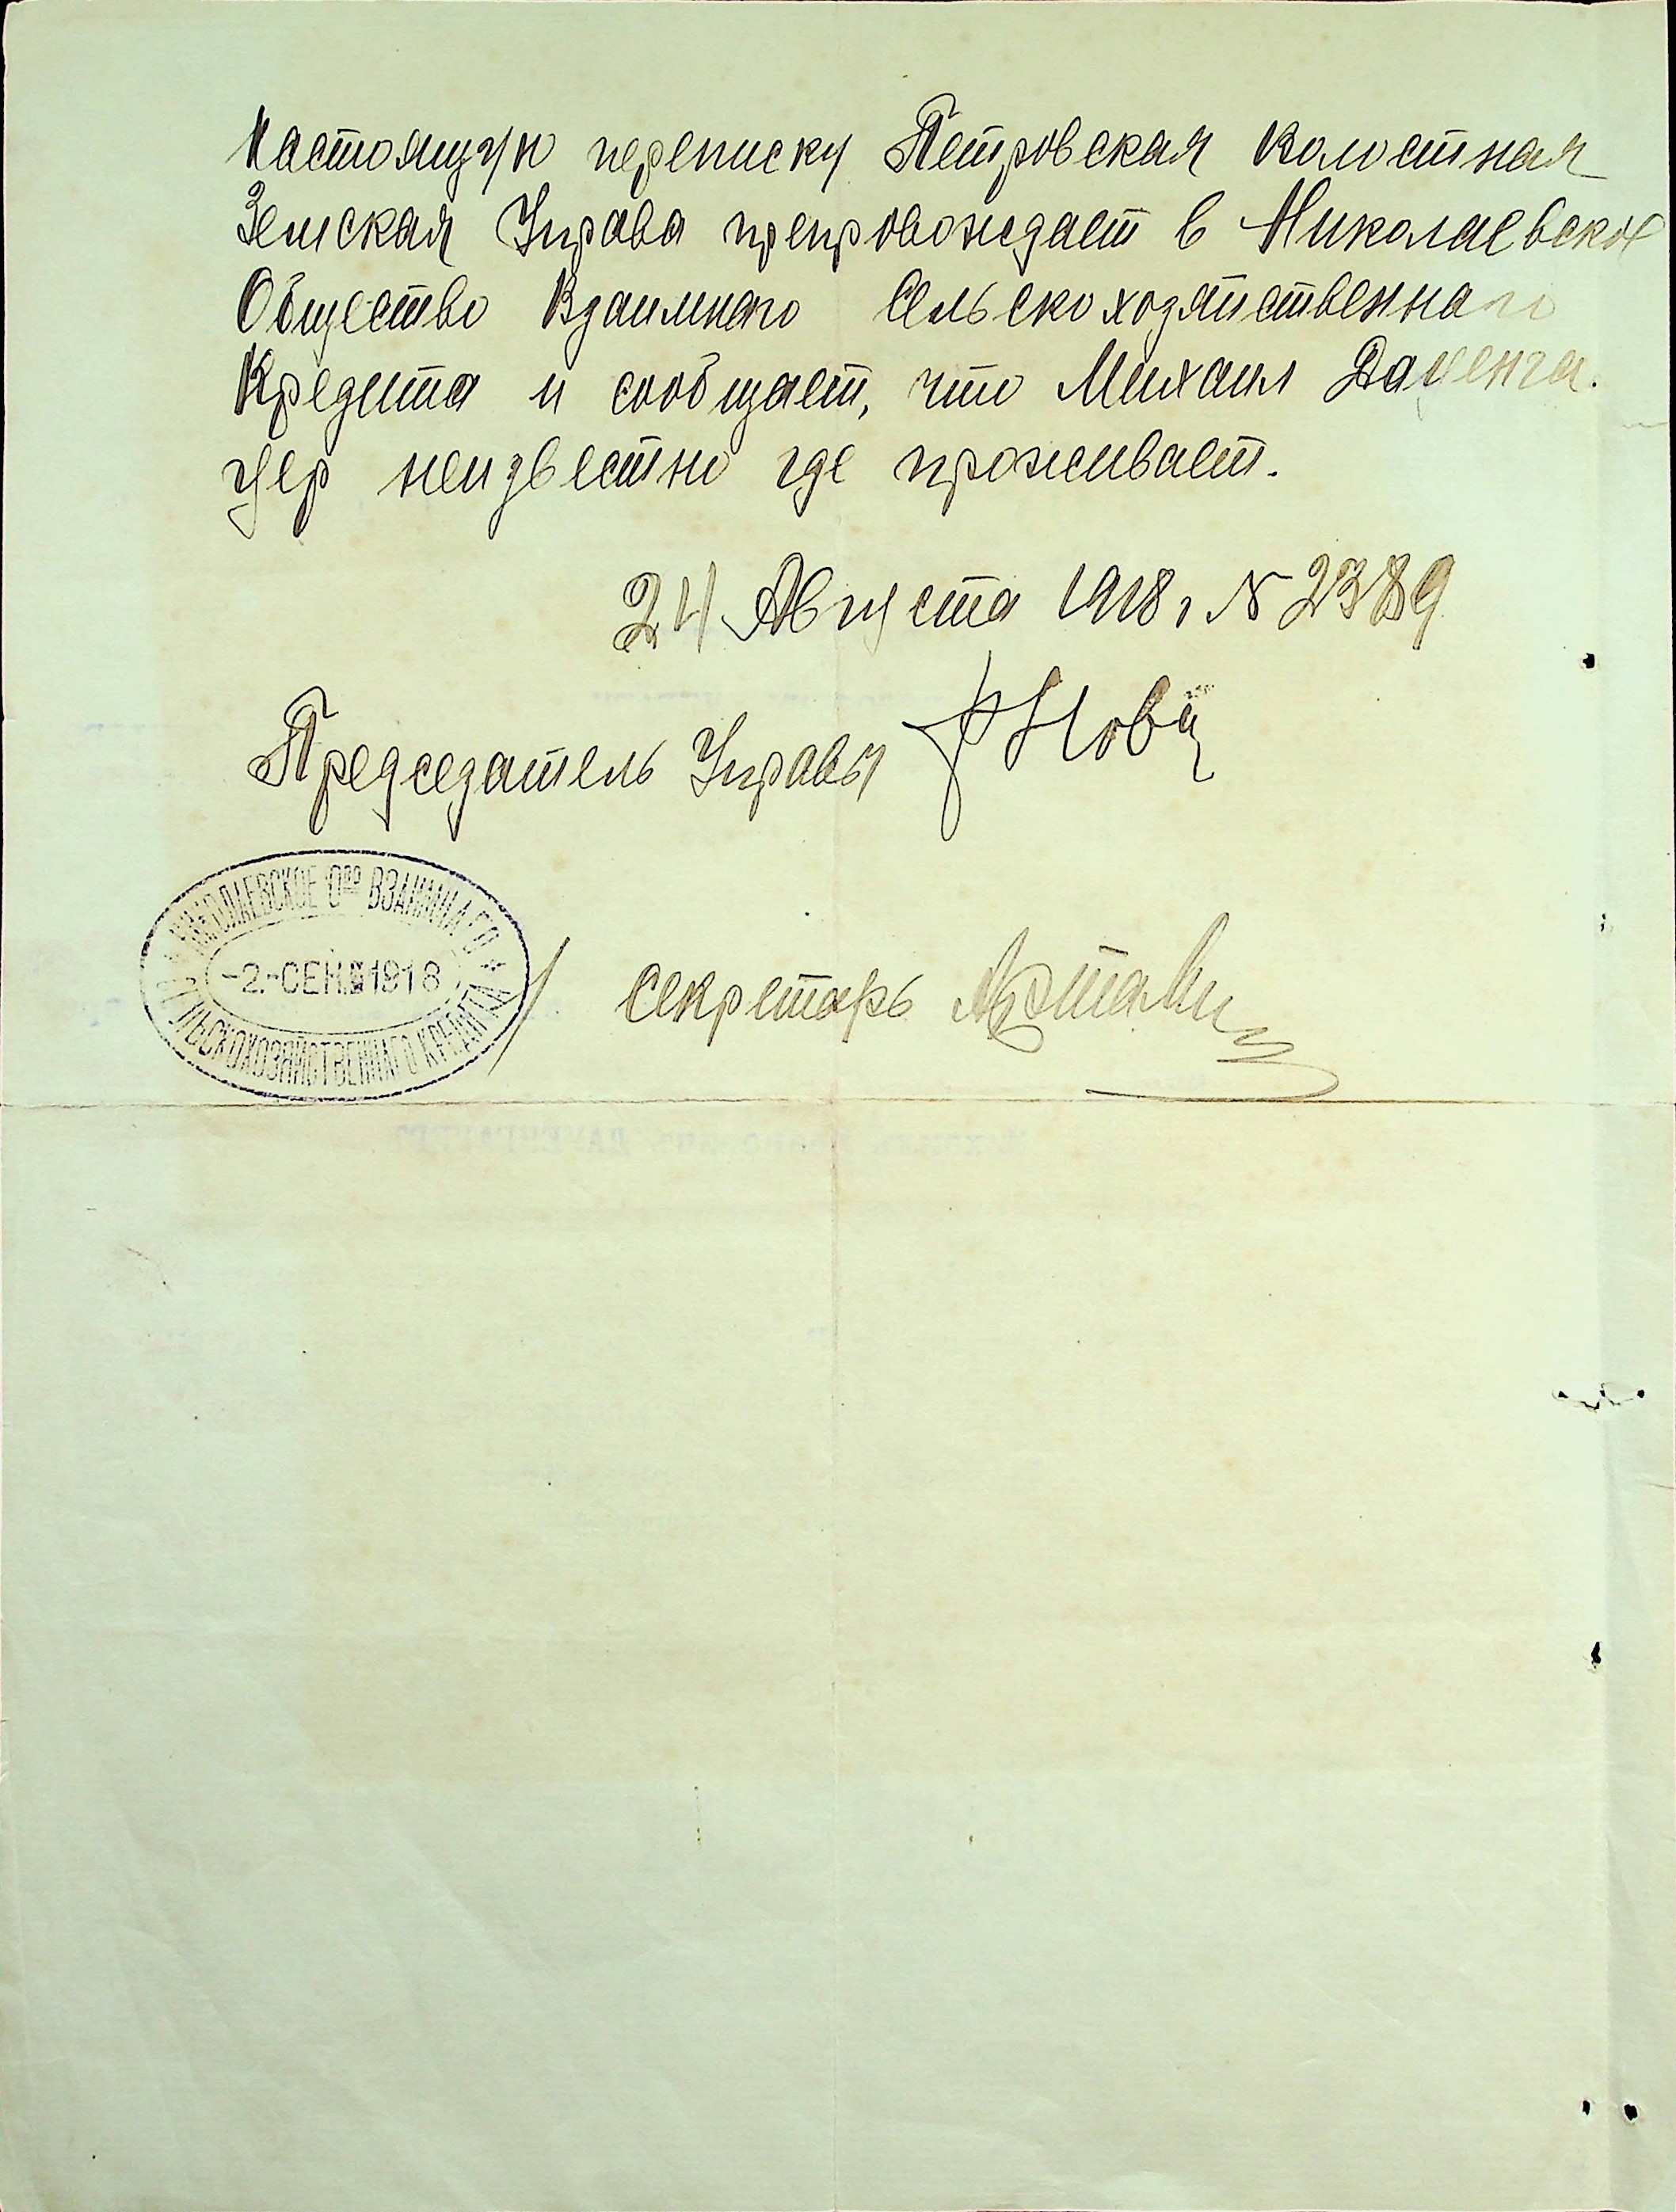 Настоящую переписку Петровская Волостная
Земская Управа препровождает в Николаевское
Общество Взаимнаго Сельскохозяйственнаго
Кредита и сообщает, что Михаил Дауенга.
уер неизвестно где проживает.
24 Августа 1918 г № 2389
Председатель Управы
НИКОЛАЕВСКОЕ О-во ВЗАИМНАГО
-2.-СЕН.1918
СЕЛЬСКОХОЗЯЙСТВЕННАГО КРЕДИТА
Секретарь